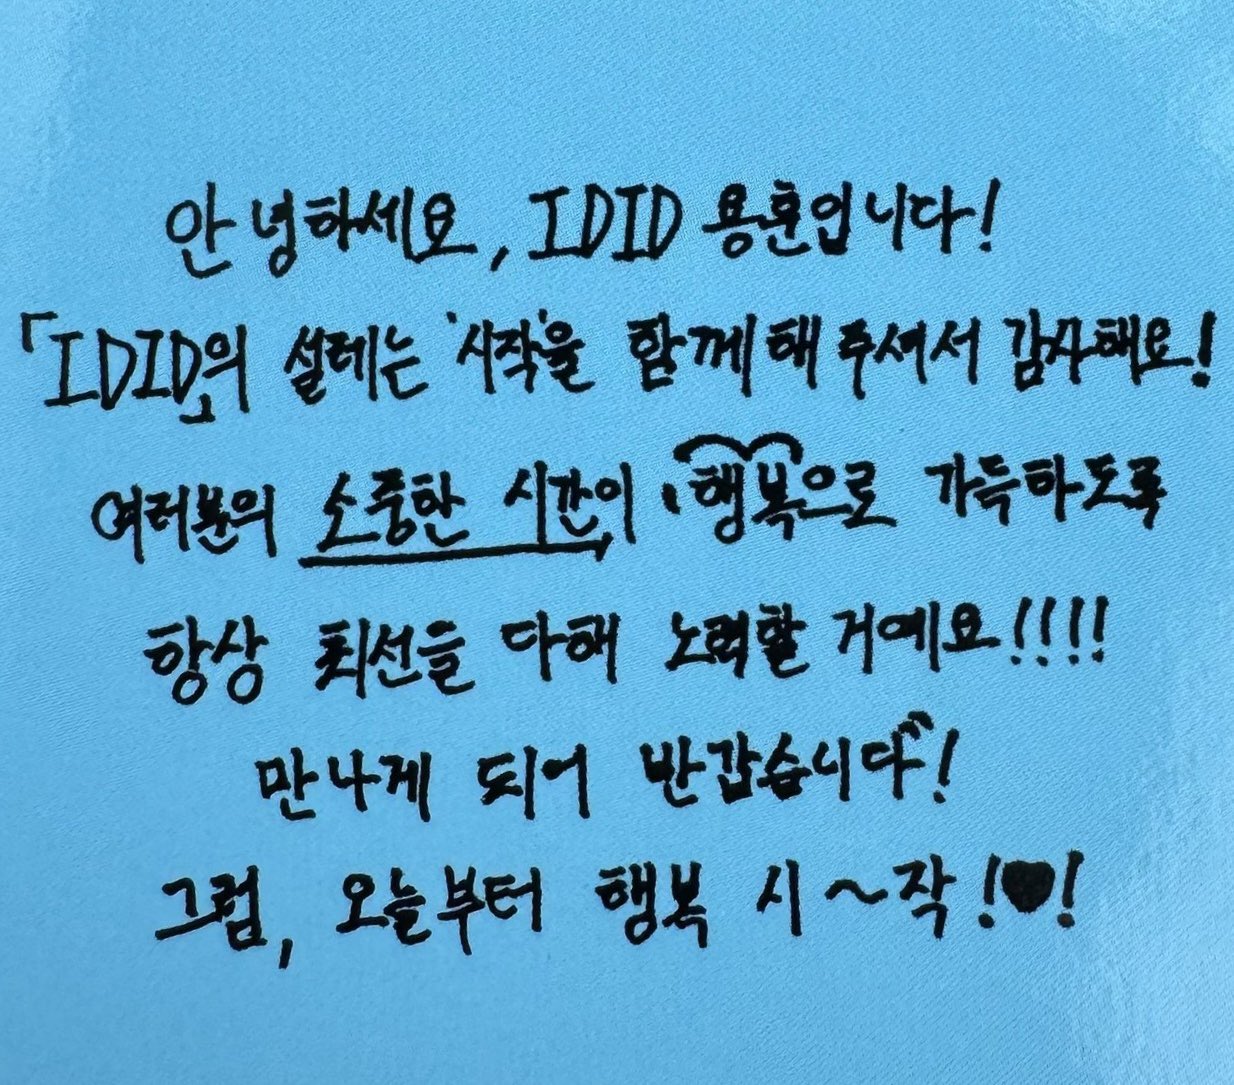 안녕하세요, IDID 용훈입니다!
「IDID」의 설레는 '시작'을 함께 해 주셔서 감사해요!
여러분의 소중한 시간이 행복으로 가득하도록
항상 최선을 다해 노력할 거예요!!!!
만나게 되어 반갑습니다!
그럼, 오늘부터 행복 시~작!♥!